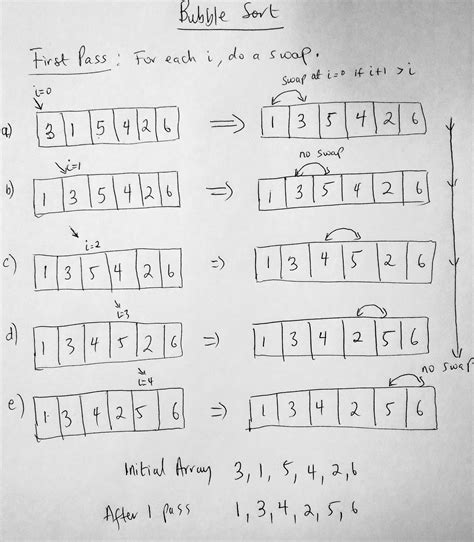 Bubble Sort
First Pass : For each i, do a swap.
swap at i=0 if i+1 > i
i=0
a) 3 1 5 4 2 6 => 1 3 5 4 2 6
i=1
no swap
b) 1 3 5 4 2 6 => 1 3 5 4 2 6
i=2
c) 1 3 5 4 2 6 => 1 3 4 5 2 6
i=3
d) 1 3 4 5 2 6 => 1 3 4 2 5 6
i=4
no swap
e) 1 3 4 2 5 6 => 1 3 4 2 5 6
Initial Array 3, 1, 5, 4, 2, 6
After 1 pass 1, 3, 4, 2, 5, 6